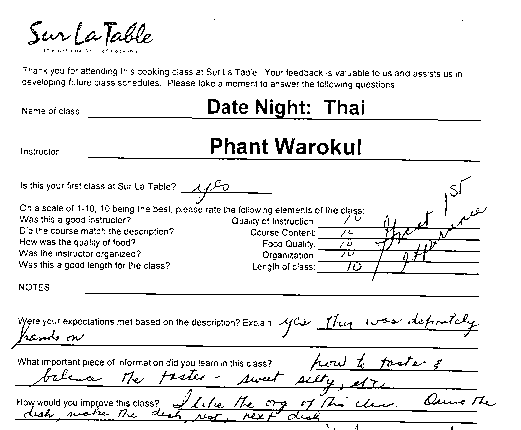 Sur La Table
Thank you for attending this cooking class at Sur La Table. Your feedback is valuable to us and assists us in
developing future class schedules. Please take a moment to answer the following questions
Name of class Date Night: Thai
Instructor Phant Warokul
Is this your first class at Sur La Table? yes
On a scale of 1-10, 10 being the best, please rate the following elements of the class:
Was this a good instructor? Quality of Instruction 10
Did the course match the description? Course Content: 10
How was the quality of food? Food Quality: 10
Was the instructor organized? Organization 10
Was this a good length for the class? Length of class: 10
Great 1ST
experience
NOTES
Were your expectations met based on the description? Explain yes this was definitely
hands on
What important piece of information did you learn in this class? how to taste &
balance the tastes - sweet salty, etc.
How would you improve this class? I like the org of this class. the
dish, make the dish, rest, next dish